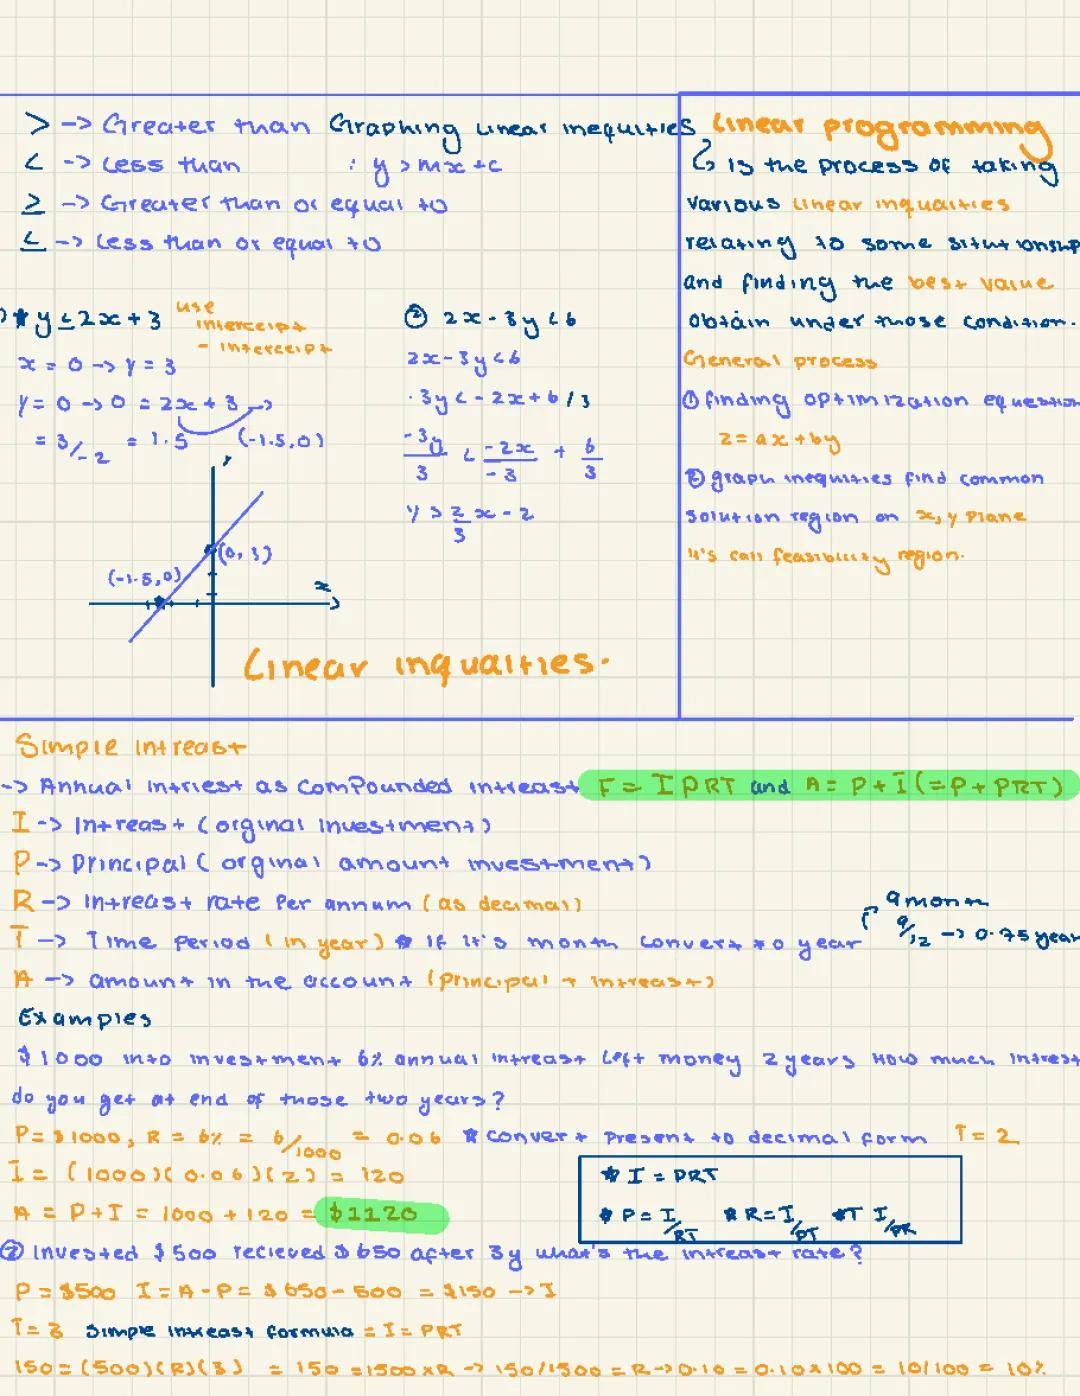 > -> Greater than Graphing linear inequities
< -> Less than : y > mx + c
≥ -> Greater than or equal to
≤ -> less than or equal to
* y ≤ 2x + 3 use
interceipt
- intercelpt
x = 0 -> y = 3
y = 0 -> 0 = 2x + 3 ->
= 3/-2 = 1.5 (-1.5,0)
y
(0, 3)
(-1.5,0)
x
② 2x - 3y < 6
2x - 3y < 6
-3y < -2x + 6 / 3
-3y/3 < -2x/-3 + 6/3
y > 2/3 x - 2
Linear inqualties.
Linear programming
is the process of taking
various linear inqualties
relating to some
and finding the best value
obtain under those condition.
General process
① finding optimization equestion
z = ax + by
② graph inequities find common
solution region on x, y plane
it's call feasibility region.
Simple intreast
-> Annual intriest as compounded intreast F = I PRT and A = P + I (= P + PRT)
I -> Intreast (orginal investment)
P -> Principal (orginal amount investment)
R -> Intreast rate Per annum (as decimal)
9 month
T -> Time Period (in year) * if it's month convert to year 9/12 -> 0.75 year
A -> amount in the account (principal + intreast)
Examples
$1000 into investment 6% annual intreast left money 2 years How much intrest
do you get at end of those two years?
P = $1000, R = 6% = 6/1000 = 0.06 * convert present to decimal form T = 2
I = (1000)(0.06)(2) = 120
A = P + I = 1000 + 120 = $1120
* I = PRT
* P = I/RT * R = I/PT * T I/PR
② Invested $500 recieved $650 after 3y what's the intreast rate?
P = $500 I = A - P = $650 - 500 = $150 -> I
T = 3 Simple intreast formula = I = PRT
150 = (500)(R)(3) = 150 = 1500 x R -> 150/1500 = R -> 0.10 = 0.10 x 100 = 10/100 = 10%